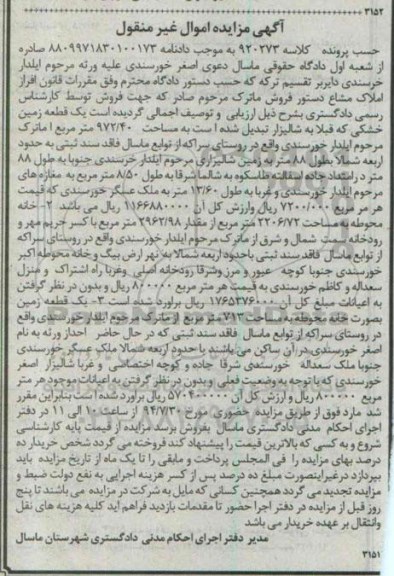 ۳۱۵۲
آگهی مزایده اموال غیر منقول
حسب پرونده کلاسه ۹۲۰۲۷۳ به موجب دادنامه ۸۸۰۹۹۷۱۸۳۰۱۰۰۱۷۳ صادره
از شعبه اول دادگاه حقوقی ماسال دعوی اصغر خورسندی علیه ورثه مرحوم ایلدار
خرسندی دایربر تقسیم ترکه که حسب دستور دادگاه محترم وفق مقررات قانون افراز
املاک مشاع دستور فروش ماترک مرحوم صادر که جهت فروش توسط کارشناس
رسمی دادگستری بشرح ذیل ارزیابی و توصیف اجمالی گردیده است یک قطعه زمین
خشکی که قبلا به شالیزار تبدیل شده است به مساحت ۹۷۲/۴۰ متر مربع ا ماترک
مرحوم ایلدار خورسندی واقع در روستای سراکه از توابع ماسال فاقد سند ثبتی به حدود
اربعه شمالا بطول ۸۸ متر به زمین شالیزاری مرحوم ایلدار خرسندی جنوبا به طول ۸۸
متر در امتداد جاده اسفالته طاسکوه به شالما شرقا به طول ۸/۵۰ متر مربع به مغازه های
مرحوم ایلدار خورسندی و غربا به طول ۱۳/۶۰ متر به ملک عسگر خورسندی که قیمت
هر مر مربع ۷۲۰۰/۰۰۰ ریال وارزش کل آن ۱۱۶۶۸۸۰۰۰۰ ریال می باشد ۲- خانه
محوطه به مساحت ۲۲۰۶/۷۲ متر مربع از مقدار ۲۹۶۲/۹۸ متر مربع با کسر حریم مهر و
رودخانه سمت شمال و شرق از ماترک مرحوم ایلدار خورسندی واقع در روستای سراکه
از توابع ماسال فاقد سند ثبتی باحدود اربعه شمالا به نهر ارض بیگ و خانه محوطه اکبر
خورسندی جنوبا کوچه عبور و مرز وشرقا رودخانه اصلی وغربا راه اشتراک و منزل
سعداله و کاظم خورسندی به قیمت هر متر مربع ۸۰۰۰۰۰ ریال و بدون در نظر گرفتن
به اعیانات مبلغ کل آن ۱۷۶۵۳۷۶۰۰۰ ریال برآورد شده است ۳- یک قطعه زمین
بصورت خانه محوطه به مساحت ۷۱۳ متر مربع از ماترک مرحوم ایلدار خورسندی واقع
در روستای سراکه از توابع ماسال فاقد سند ثبتی که در حال حاضر احداز ورثه به نام
اصغر خورسندی در آن ساکن می باشند با حدود اربعه شمالا ملک عسگر خورسندی
جنوبا ملک سعداله خورسندی شرقا جاده و کوچه اختصاصی و غربا شالیزار اصغر
خورسندی که با توجه به وضعیت فعلی و بدون در نظر گرفتن به اعیانات موجود هر متر
مربع ۸۰۰۰۰۰ ریال و ارزش کل آن ۵۷۰۴۰۰۰۰۰ ریال برآورد شده است بنابراین مقرر
شد مارد فوق از طریق مزایده حضوری مورخ ۹۴/۷/۳۰ از ساعت ۱۰ الی ۱۱ در دفتر
اجرای احکام مدنی دادگستری ماسال بفروش برسد مزایده از قیمت پایه کارشناسی
شروع و به کسی که بالاترین قیمت را پیشنهاد کند فروخته می گردد شخص خریدار ده
درصد بهای مزایده را فی المجلس پرداخت و مابقی را تا یک ماه از تاریخ مزایده باید
بپردازد در غیراینصورت مبلغ ده درصد پس از کسر هزینه اجرایی به نفع دولت ضبط و
مزایده تجدید می گردد همچنین کسانی که مایل به شرکت در مزایده می باشند تا پنج
روز قبل از مزایده در دفتر اجرا حضور تا مقدمات بازدید فراهم آید کلیه هزینه های نقل
وانتقال بر عهده خریدار می باشد
مدیر دفتر اجرای احکام مدنی دادگستری شهرستان ماسال
۳۱۵۱